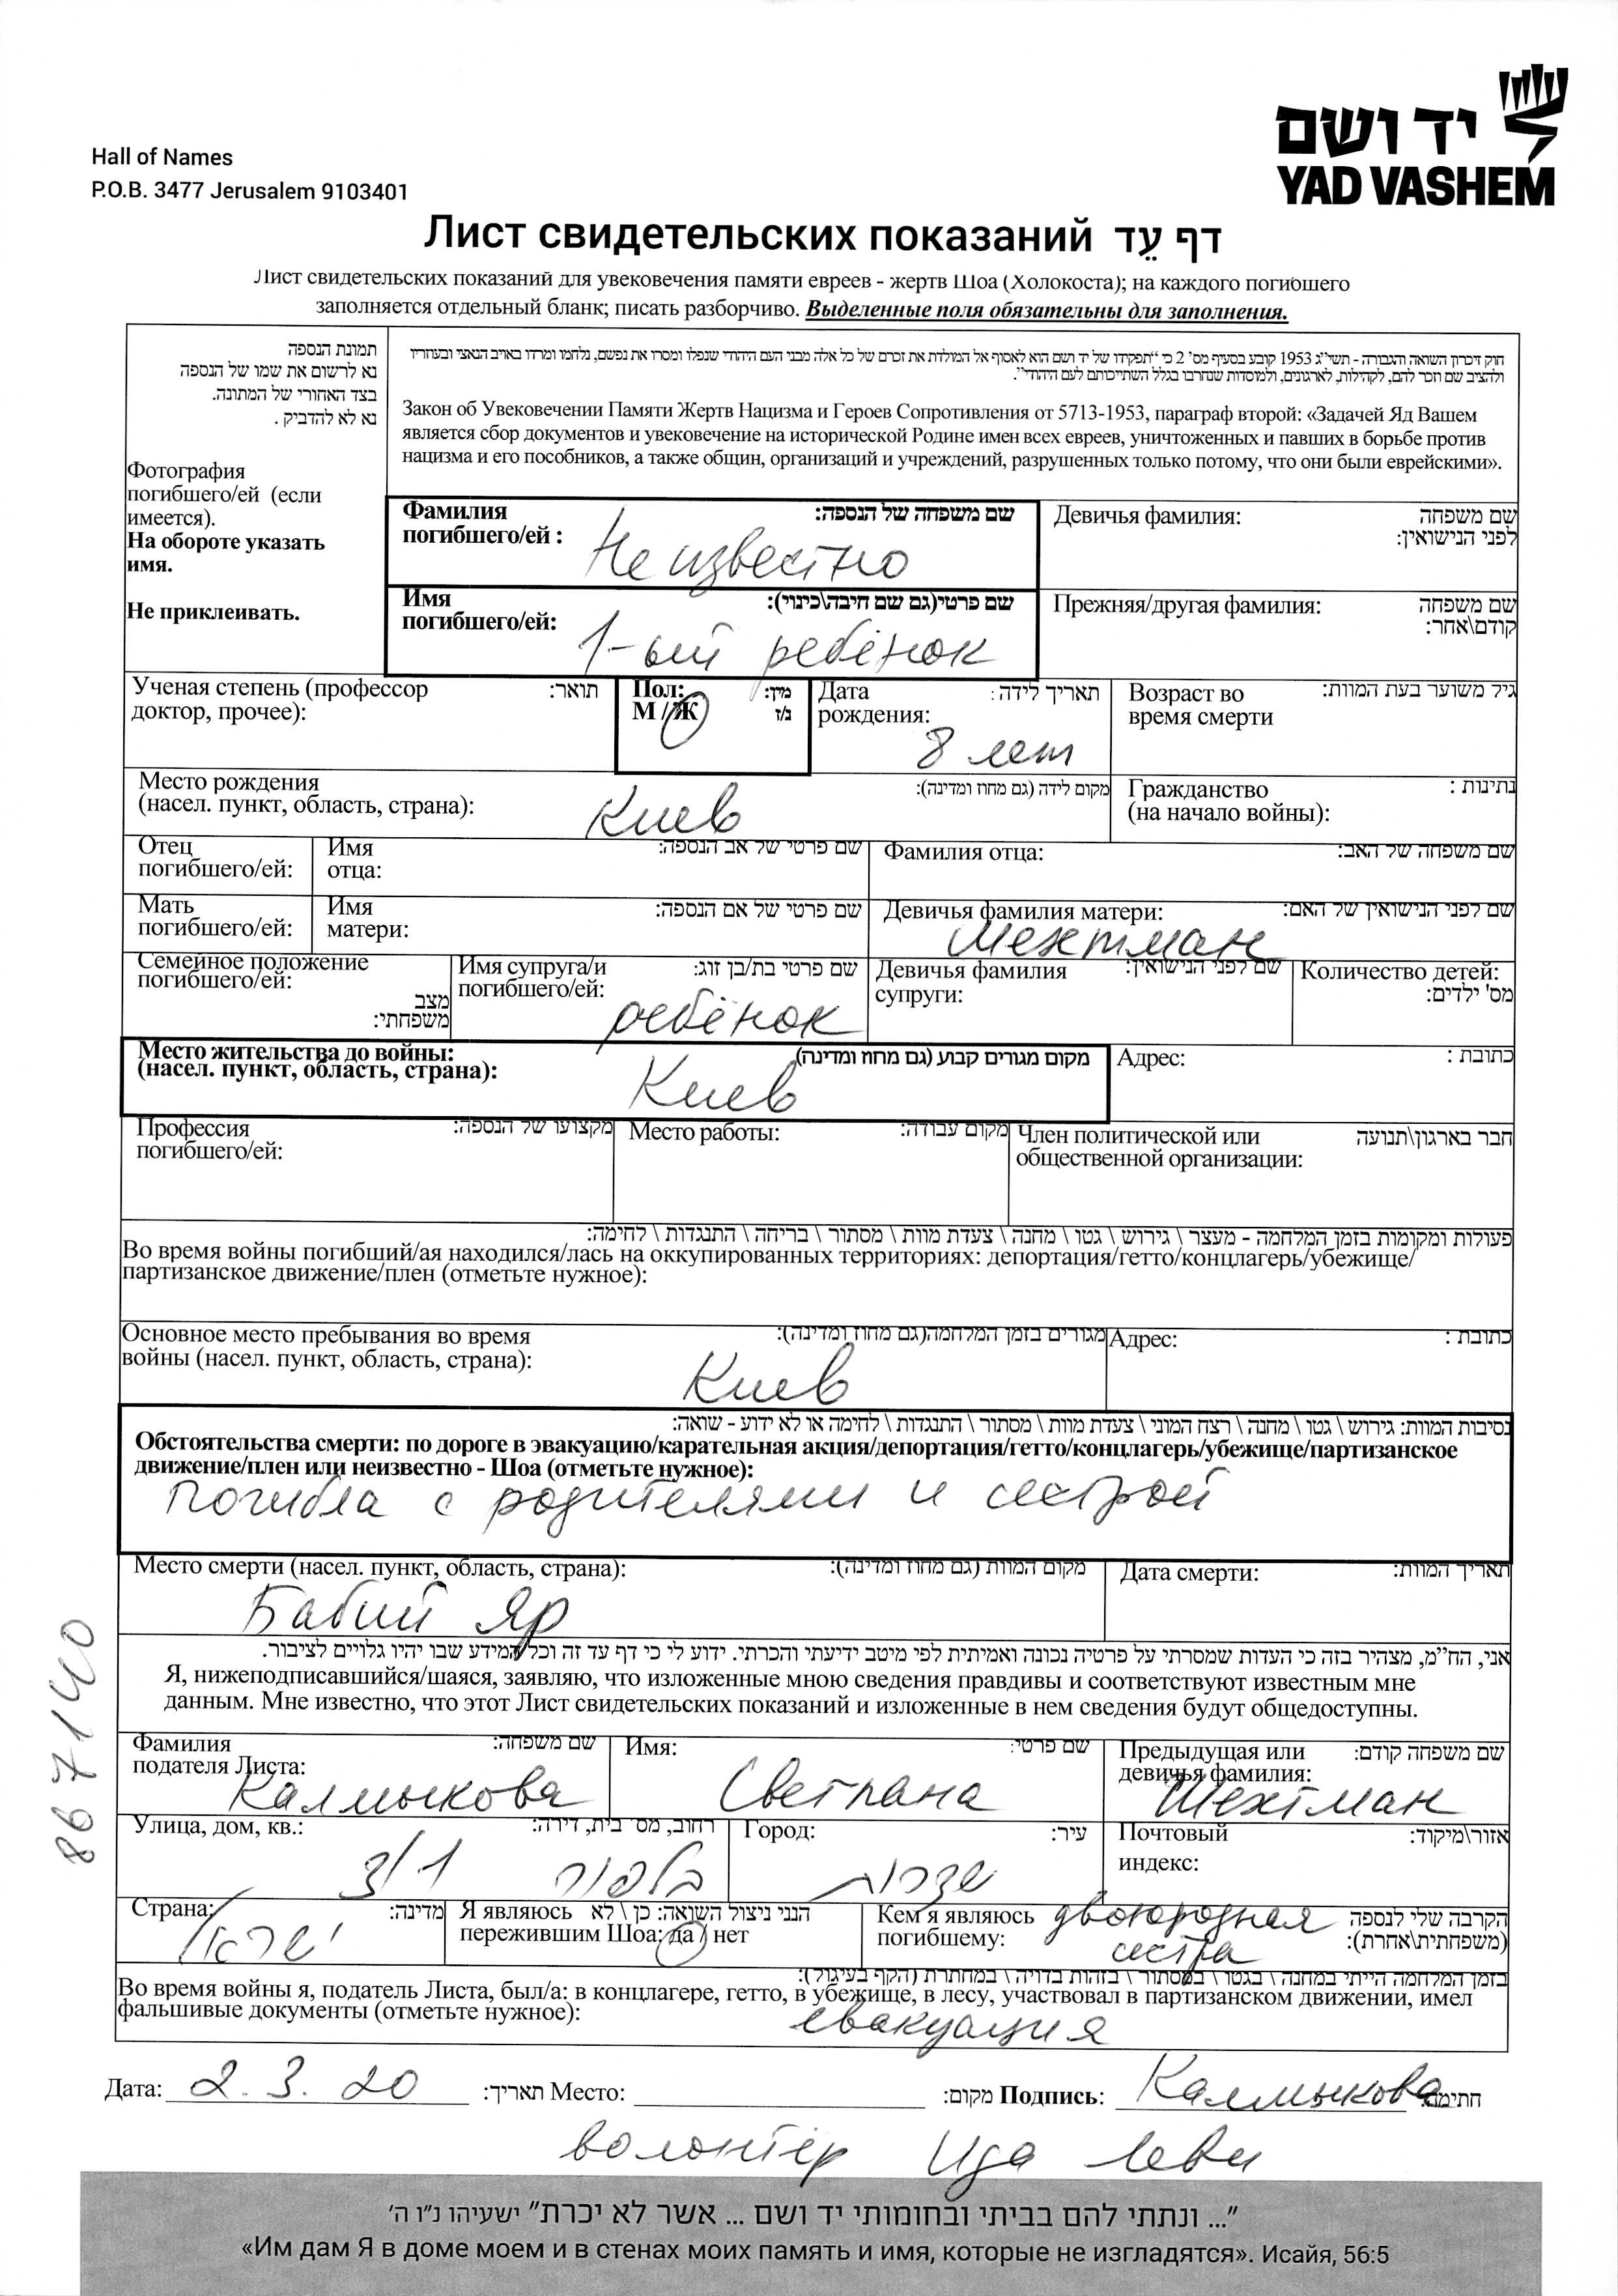 יד ושם
YAD VASHEM
Hall of Names
P.O.B. 3477 Jerusalem 9103401
Лист свидетельских показаний דף עֵד
Лист свидетельских показаний для увековечения памяти евреев - жертв Шоа (Холокоста); на каждого погибшего
заполняется отдельный бланк; писать разборчиво. Выделенные поля обязательны для заполнения.
תמונת הנספה
נא לרשום את שמו של הנספה
בצד האחורי של המתונה.
נא לא להדביק .
Фотография
погибшего/ей (если
имеется).
На обороте указать
имя.
Не приклеивать.
חוק זיכרון השואה והגבורה - תשי"ג 1953 קובע בסעיף מס' 2 כי "תפקידו של יד ושם הוא לאסוף אל המולדת את זכרם של כל אלה מבני העם היהודי שנפלו ומסרו את נפשם, נלחמו ומרדו באויב הנאצי ובעוזריו
ולהציב שם וזכר להם, לקהילות, לארגונים, ולמוסדות שנחרבו בגלל השתייכותם לעם היהודי".
Закон об Увековечении Памяти Жертв Нацизма и Героев Сопротивления от 5713-1953, параграф второй: «Задачей Яд Вашем
является сбор документов и увековечение на исторической Родине имен всех евреев, уничтоженных и павших в борьбе против
нацизма и его пособников, а также общин, организаций и учреждений, разрушенных только потому, что они были еврейскими».
Фамилия שם משפחה של הנספה:
погибшего/ей :
Не известно
Девичья фамилия: שם משפחה
לפני הנישואין:
Имя שם פרטי(גם שם חיבה\כינוי):
погибшего/ей:
1-ый ребёнок
Прежняя/другая фамилия: שם משפחה
קודם\אחר:
Ученая степень (профессор תואר:
доктор, прочее):
Пол: מין:
М / Ж ז/נ
Дата תאריך לידה :
рождения:
8 лет
Возраст во גיל משוער בעת המוות:
время смерти
Место рождения
(насел. пункт, область, страна): מקום לידה (גם מחוז ומדינה):
Киев
Гражданство נתינות :
(на начало войны):
Отец
погибшего/ей:
Имя שם פרטי של אב הנספה:
отца:
Фамилия отца: שם משפחה של האב:
Мать
погибшего/ей:
Имя שם פרטי של אם הנספה:
матери:
Девичья фамилия матери: שם לפני הנישואין של האם:
Шехтман
Семейное положение
погибшего/ей:
מצב
משפחתי:
Имя супруга/и שם פרטי בת/בן זוג:
погибшего/ей:
ребёнок
Девичья фамилия שם לפני הנישואין:
супруги:
Количество детей:
מס' ילדים:
Место жительства до войны:
(насел. пункт, область, страна): מקום מגורים קבוע (גם מחוז ומדינה)
Киев
Адрес: כתובת :
Профессия מקצועו של הנספה:
погибшего/ей:
Место работы: מקום עבודה:
Член политической или חבר בארגון\תנועה
общественной организации:
פעולות ומקומות בזמן המלחמה - מעצר \ גירוש \ גטו \ מחנה \ צעדת מוות \ מסתור \ בריחה \ התנגדות \ לחימה:
Во время войны погибший/ая находился/лась на оккупированных территориях: депортация/гетто/концлагерь/убежище/
партизанское движение/плен (отметьте нужное):
Основное место пребывания во время מגורים בזמן המלחמה(גם מחוז ומדינה):
войны (насел. пункт, область, страна):
Киев
Адрес: כתובת :
נסיבות המוות: גירוש \ גטו \ מחנה \ רצח המוני \ צעדת מוות \ מסתור \ התנגדות \ לחימה או לא ידוע - שואה:
Обстоятельства смерти: по дороге в эвакуацию/карательная акция/депортация/гетто/концлагерь/убежище/партизанское
движение/плен или неизвестно - Шоа (отметьте нужное):
Погибла с родителями и сестрой
Место смерти (насел. пункт, область, страна): מקום המוות (גם מחוז ומדינה):
Бабий Яр
Дата смерти: תאריך המוות:
8671140
אני, הח"מ, מצהיר בזה כי העדות שמסרתי על פרטיה נכונה ואמיתית לפי מיטב ידיעתי והכרתי. ידוע לי כי דף עד זה וכל המידע שבו יהיו גלויים לציבור.
Я, нижеподписавшийся/шаяся, заявляю, что изложенные мною сведения правдивы и соответствуют известным мне
данным. Мне известно, что этот Лист свидетельских показаний и изложенные в нем сведения будут общедоступны.
Фамилия שם משפחה:
подателя Листа:
Калмыкова
Имя: שם פרטי:
Светлана
Предыдущая или שם משפחה קודם:
девичья фамилия:
Шехтман
Улица, дом, кв.: רחוב, מס' בית, דירה:
בלפור 3/1
Город: עיר:
שדרות
Почтовый אזור\מיקוד:
индекс:
Страна: מדינה:
ישראל
Я являюсь הנני ניצול השואה: כן \ לא
пережившим Шоа: да / нет
Кем я являюсь הקרבה שלי לנספה
погибшему: (משפחתית\אחרת):
двоюродная
сестра
בזמן המלחמה הייתי במחנה \ בגטו \ במסתור \ בזהות בדויה \ במחתרת (הקף בעיגול):
Во время войны я, податель Листа, был/а: в концлагере, гетто, в убежище, в лесу, участвовал в партизанском движении, имел
фальшивые документы (отметьте нужное):
евакуация
Дата: 2.3.20 תאריך: Место: מקום: Подпись: Калмыкова חתימה:
волонтёр Ида Леви
"... ונתתי להם בביתי ובחומותי יד ושם ... אשר לא יכרת" ישעיהו נ"ו ה'
«Им дам Я в доме моем и в стенах моих память и имя, которые не изгладятся». Исайя, 56:5